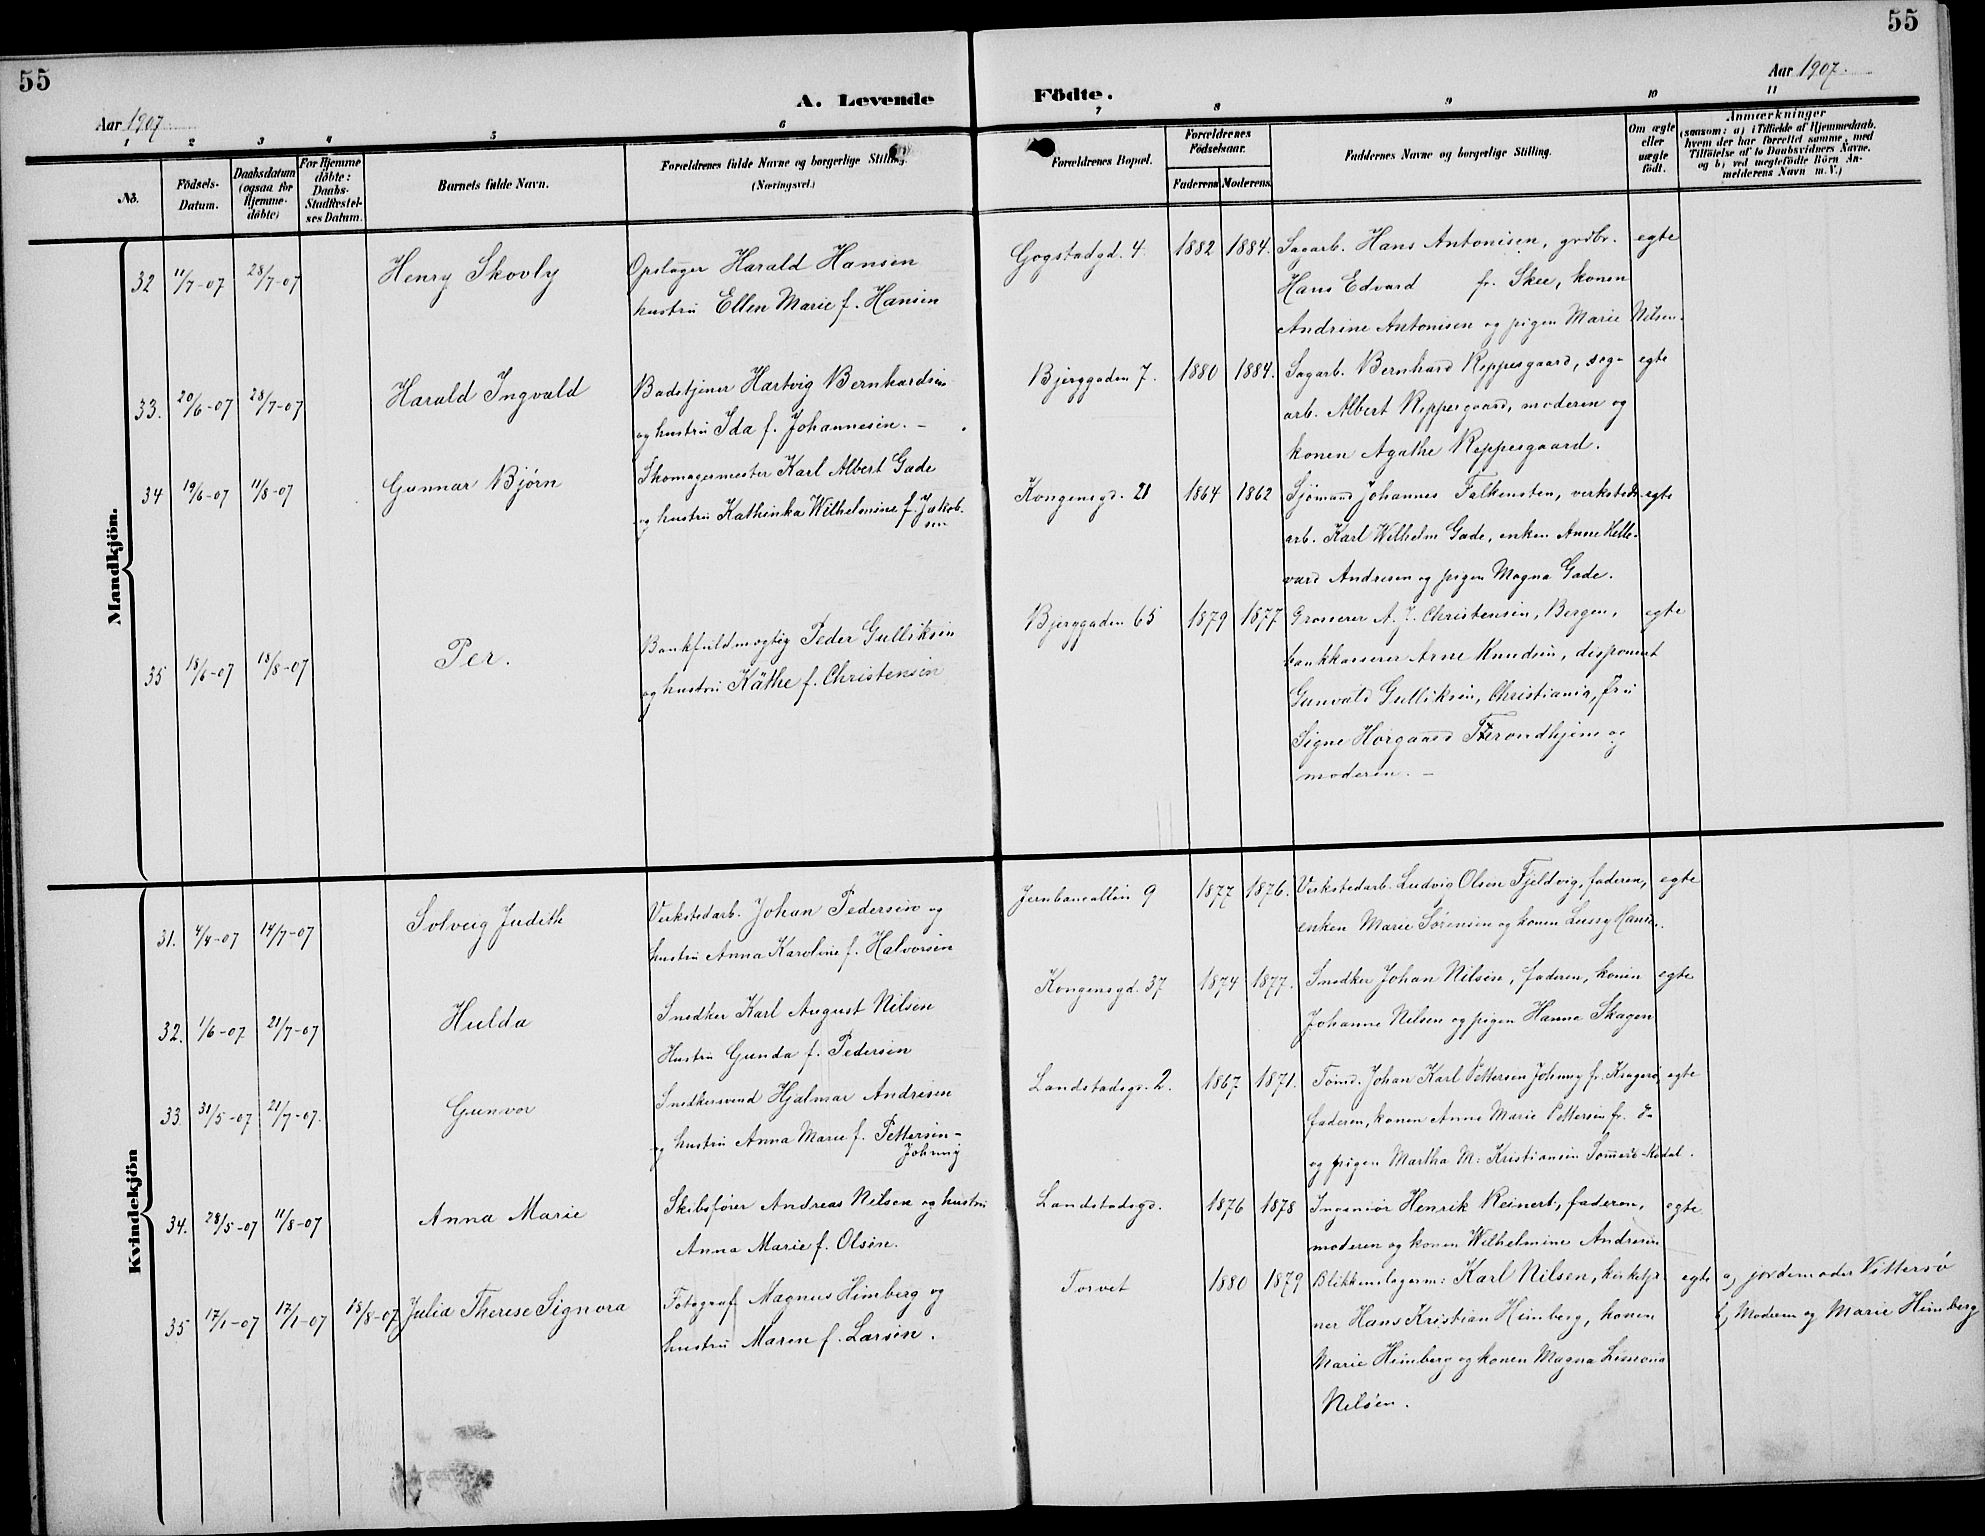 55
55
Aar 1907.
A. Levende Födte.
Aar 1907.
1 2 3 4 5 6 7 8 9 10 11
No.
Födsels-Datum.
Daabsdatum (ogsaa for Hjemme-döbte)
For Hjemme döbte: Daabs-Stadfæstelses Datum.
Barnets fulde Navn.
Forældrenes fulde Navne og borgerlige Stilling.
(Næringsvei.)
Forældrenes Bopæl.
Forældrenes Födselsaar.
Faderens Moderens.
Faddernes Navne og borgerlige Stilling.
Om ægte eller uægte födt.
Anmærkninger
(saasom: a) i Tilfælde af Hjemmedaab,
hvem der har forrettet samme, med
Tilföielse af to Daabsvidners Navne,
og b) ved uægtefödte Börn An-
melderens Navn m. V.)
Mandkjön.
32 11/7-07 28/7-07 Henry Skovly
Opslager Harald Hansen
hustru Ellen Marie f. Hansen
Gogstadgd. 4. 1882 1884.
Sagarb. Hans Antonisen, grdbr. egte
Hans Edvard fr. Skee, konen
Andrine Antonisen og pigen Marie Nilsen.
33. 20/6-07 28/7-07 Harald Ingvald
Badstjener Hartvig Bernhardsen
og hustru Ida f. Johannesen. -
Bjerggaden 7. 1880 1884.
Sagarb. Bernhard Reppesgaard, sag- egte
arb. Albert Reppesgaard, moderen og
konen Agathe Reppesgaard.
34 19/6-07 11/8-07 Gunnar Bjørn
Skomagermester Karl Albert Gade
og hustru Kathinka Wilhelmine f. Jakob-
sen
Kongensgd. 21 1864 1862
Sjömand Johannes Falkensten, verksteds- egte
arb. Karl Wilhelm Gade, enken Anne Helle-
vard Andresen og pigen Magna Gade.
35 18/6-07 18/8-07 Per.
Bankfuldmægtig Peder Gulliksen
og hustru Käthe f. Christensen
Bjerggaden 65 1879 1877
Grosserer A. J. Christensen, Bergen, egte
bankkasserer Arne Knudsen, disponent
Gunvald Gulliksen, Christiania, fru
Signe Horgaard Trondhjem og
moderen. -
Kvindekjön
31. 4/4-07 14/7-07 Solveig Judith
Verkstedarb. Johan Pedersen og
hustru Anna Karoline f. Halvorsen
Jernbanealleen 9 1877 1876.
Verkstedarb. Ludvig Olsen Fjeldvig, faderen, egte
enken Marie Sørensen og konen Lussy Hans.
32. 1/6-07 21/7-07 Hulda
Snedker Karl August Nilsen
Hustru Gunda f. Pedersen
Kongensgd. 37 1874 1877.
Snedker Johan Nilsen, faderen, konen egte
Johanne Nilsen og pigen Hanna Skagen
33. 31/5-07 21/7-07. Gunvor
Snedkersvend Hjalmar Andresen
og hustru Anna Marie f. Pettersen-
Johnny
Landstadsgd. 2. 1867 1871.
Tömd. Johan Karl Pettersen Johnny fr. Kragerø, egte
faderen, konen Anne Marie Pettersen fr. do
og pigen Martha M. Kristiansen - Kodal.
34. 28/5-07 11/8-07 Anna Marie
Skibsfører Andreas Nilsen og hustru
Anna Marie f. Olsen.
Landstadsgd. 1876 1878
Ingeniør Henrik Reinert, faderen, egte
moderen og konen Wilhelmine Andresen
35 17/1-07 17/1-07 18/8-07 Julia Therese Signora
Fotograf Magnus Heimberg og
hustru Maren f. Larsen.
Torvet 1880 1879
Blikkenslagerm: Karl Nilsen, kirketje- egte a, jordemoder Vittersö
ner Hans Kristian Heimberg, konen b, Moderen og Marie Heimberg
Marie Heimberg og konen Magna
Nilsen.